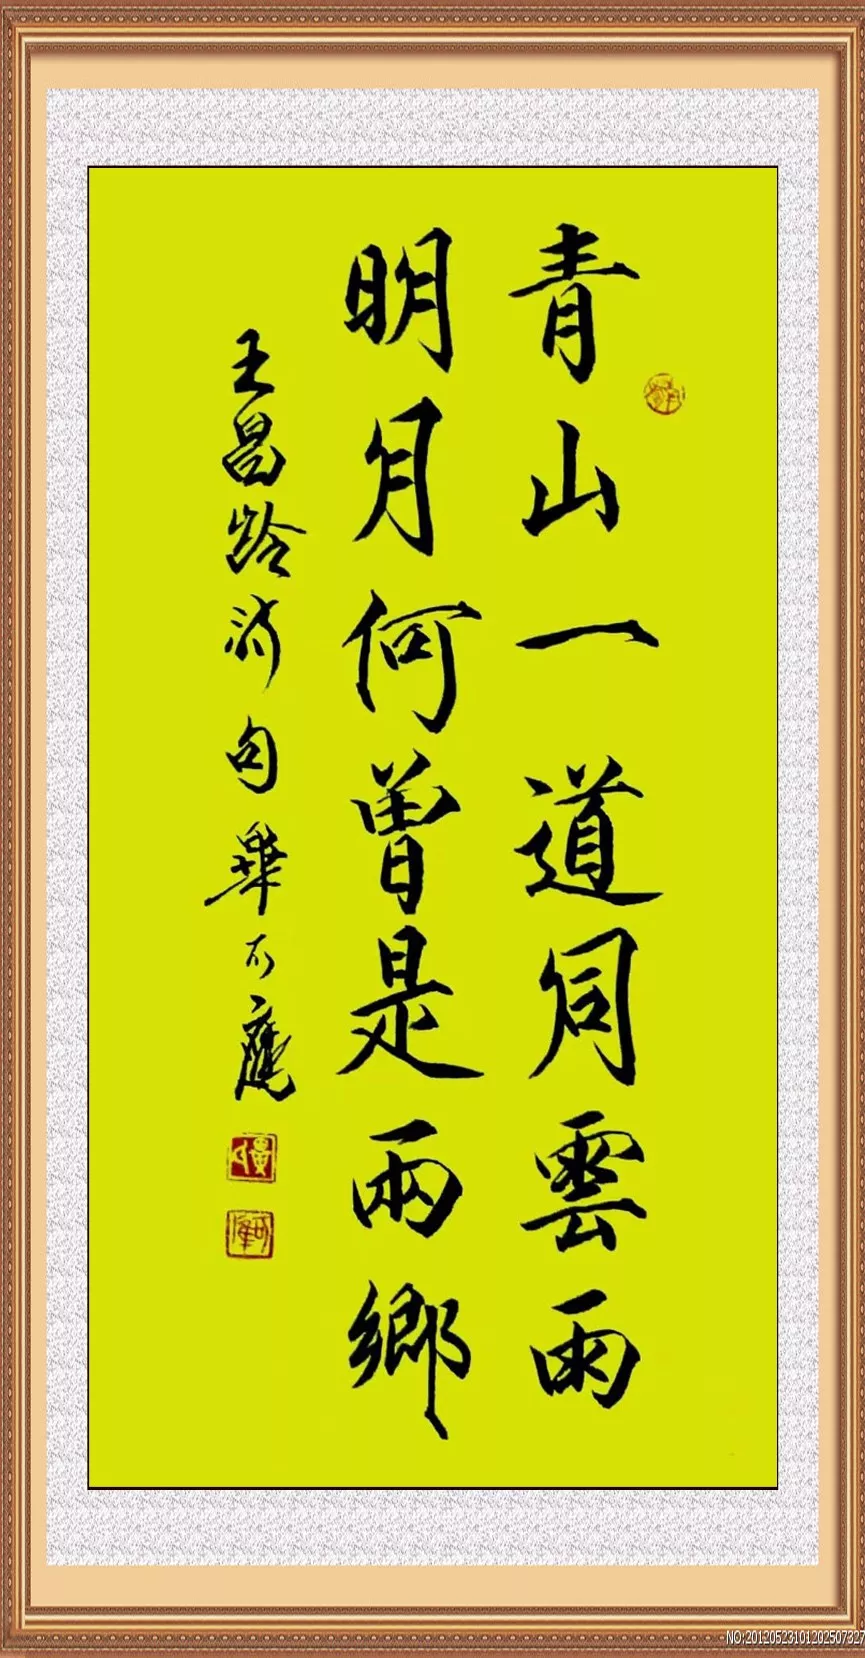 青山一道同雲雨
明月何曾是兩鄉
王昌齡詩句
NO:20120523101202507327